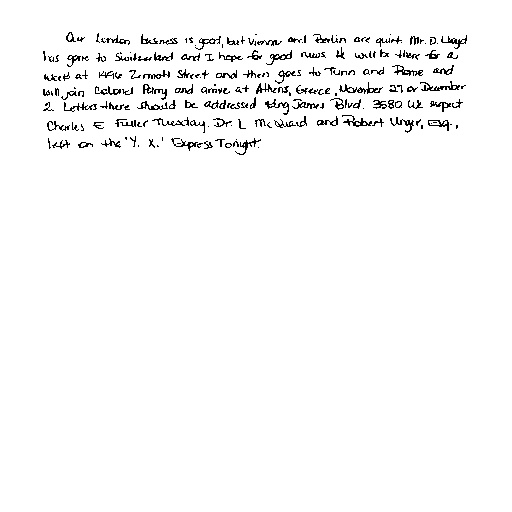 Our London business is good, but Vienna and Berlin are quiet. Mr. D. Lloyd
has gone to Switzerland and I hope for good news. He will be there for a
week at 1496 Zermott Street and then goes to Turin and Rome and
will join Colonel Parry and arrive at Athens, Greece, November 27 or December
2. Letters there should be addressed King James Blvd. 3580. We expect
Charles E. Fuller Tuesday. Dr. L. McQuaid and Robert Unger, Esq.,
left on the 'Y. X.' Express Tonight.